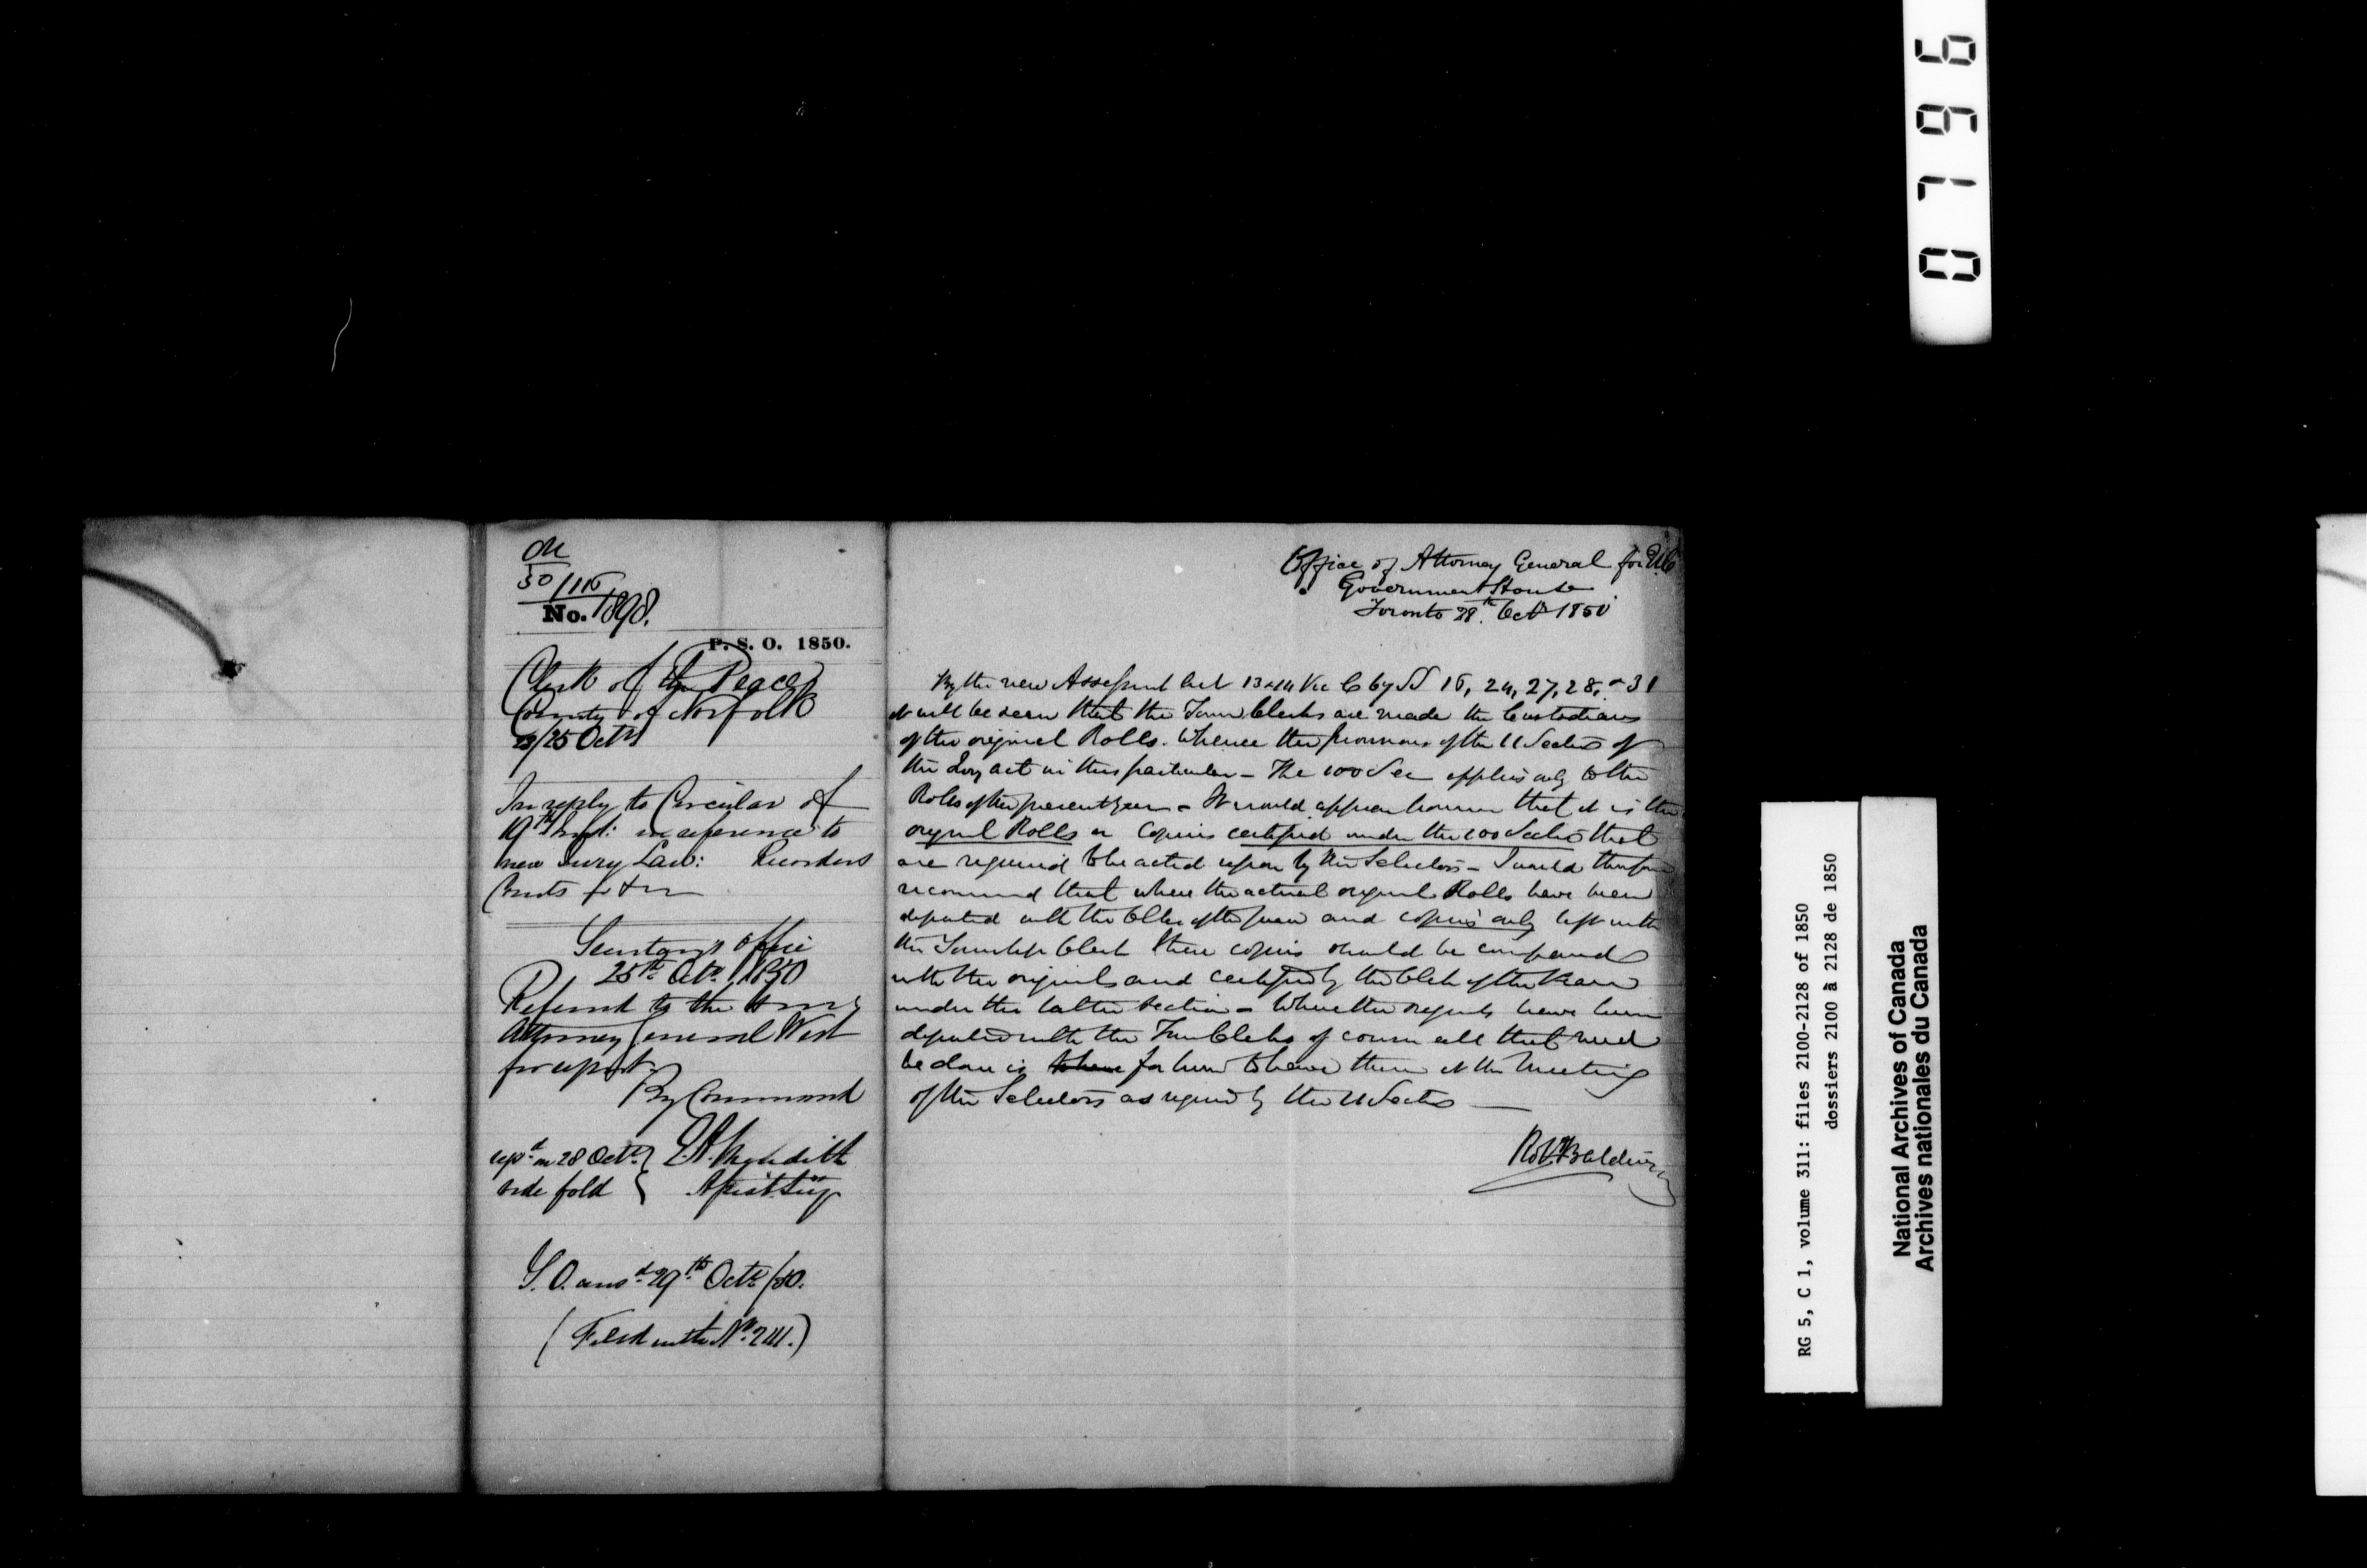 50/115
No. 1898.
P. S. O. 1850.
Clerk of the Peace
County of Norfolk
23/25 Octr
In reply to Circular of
19th inst: in reference to
new Jury Law: Recorders
Courts &c &c
Secretary's Office
25th Octr 1850
Referred to the Honble
Attorney General West
for report
By Command
repd on 28 Octr
side fold
E.A. Meredith
Assist Secy
S. O. ansd 29th Octr /50.
(Filed with No. 2111.)
Office of Attorney General for U.C
Government House
Toronto 28th Octr 1850
By the new Assessment Act 13 & 14 Vic C 67 SS 16, 24, 27, 28, & 31
it will be seen that the Town Clerks are made the Custodians
of the original Rolls. Whence the provisions of the 11 Section of
the Jury act in this particular - The 100 Sec applies only to the
Rolls of the present year - It would appear however that it is the
original Rolls or Copies certified under the 100 Section that
are required to be acted upon by the Selectors - I would therefore
recommend that where the actual original Rolls have been
deposited with the Clks of the peace and copies only left with
the Township Clerk these copies should be compared
with the originals and certified by the Clerk of the Peace
under the latter section - Where the originals have been
deposited with the Town Clerks of course all that need
be done is to have for him to have them at the Meeting
of the Selectors as required by the 11 Section
Robt Baldwin
0796
RG 5, C 1, volume 311: files 2100-2128 of 1850
dossiers 2100 à 2128 de 1850
National Archives of Canada
Archives nationales du Canada